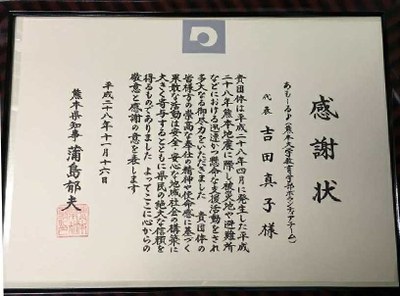 感謝状
あもーる♪(熊本大学教育学部ボランティアチーム)
代表 吉田真子様
貴団体は平成二十八年四月に発生した平成
二十八年熊本地震に際し被災地や避難所
などにおける迅速かつ懸命な支援活動をされ
多大なる御尽力をいただきました 貴団体の
皆様方の崇高な奉仕の精神や使命感に基づく
果敢な活動は安全・安心な地域社会の構築に
大きく寄与するとともに県民の絶大な信頼を
得るものでありました よってここに心からの
敬意と感謝の意を表します
平成二十八年十一月十六日
熊本県知事 蒲島郁夫